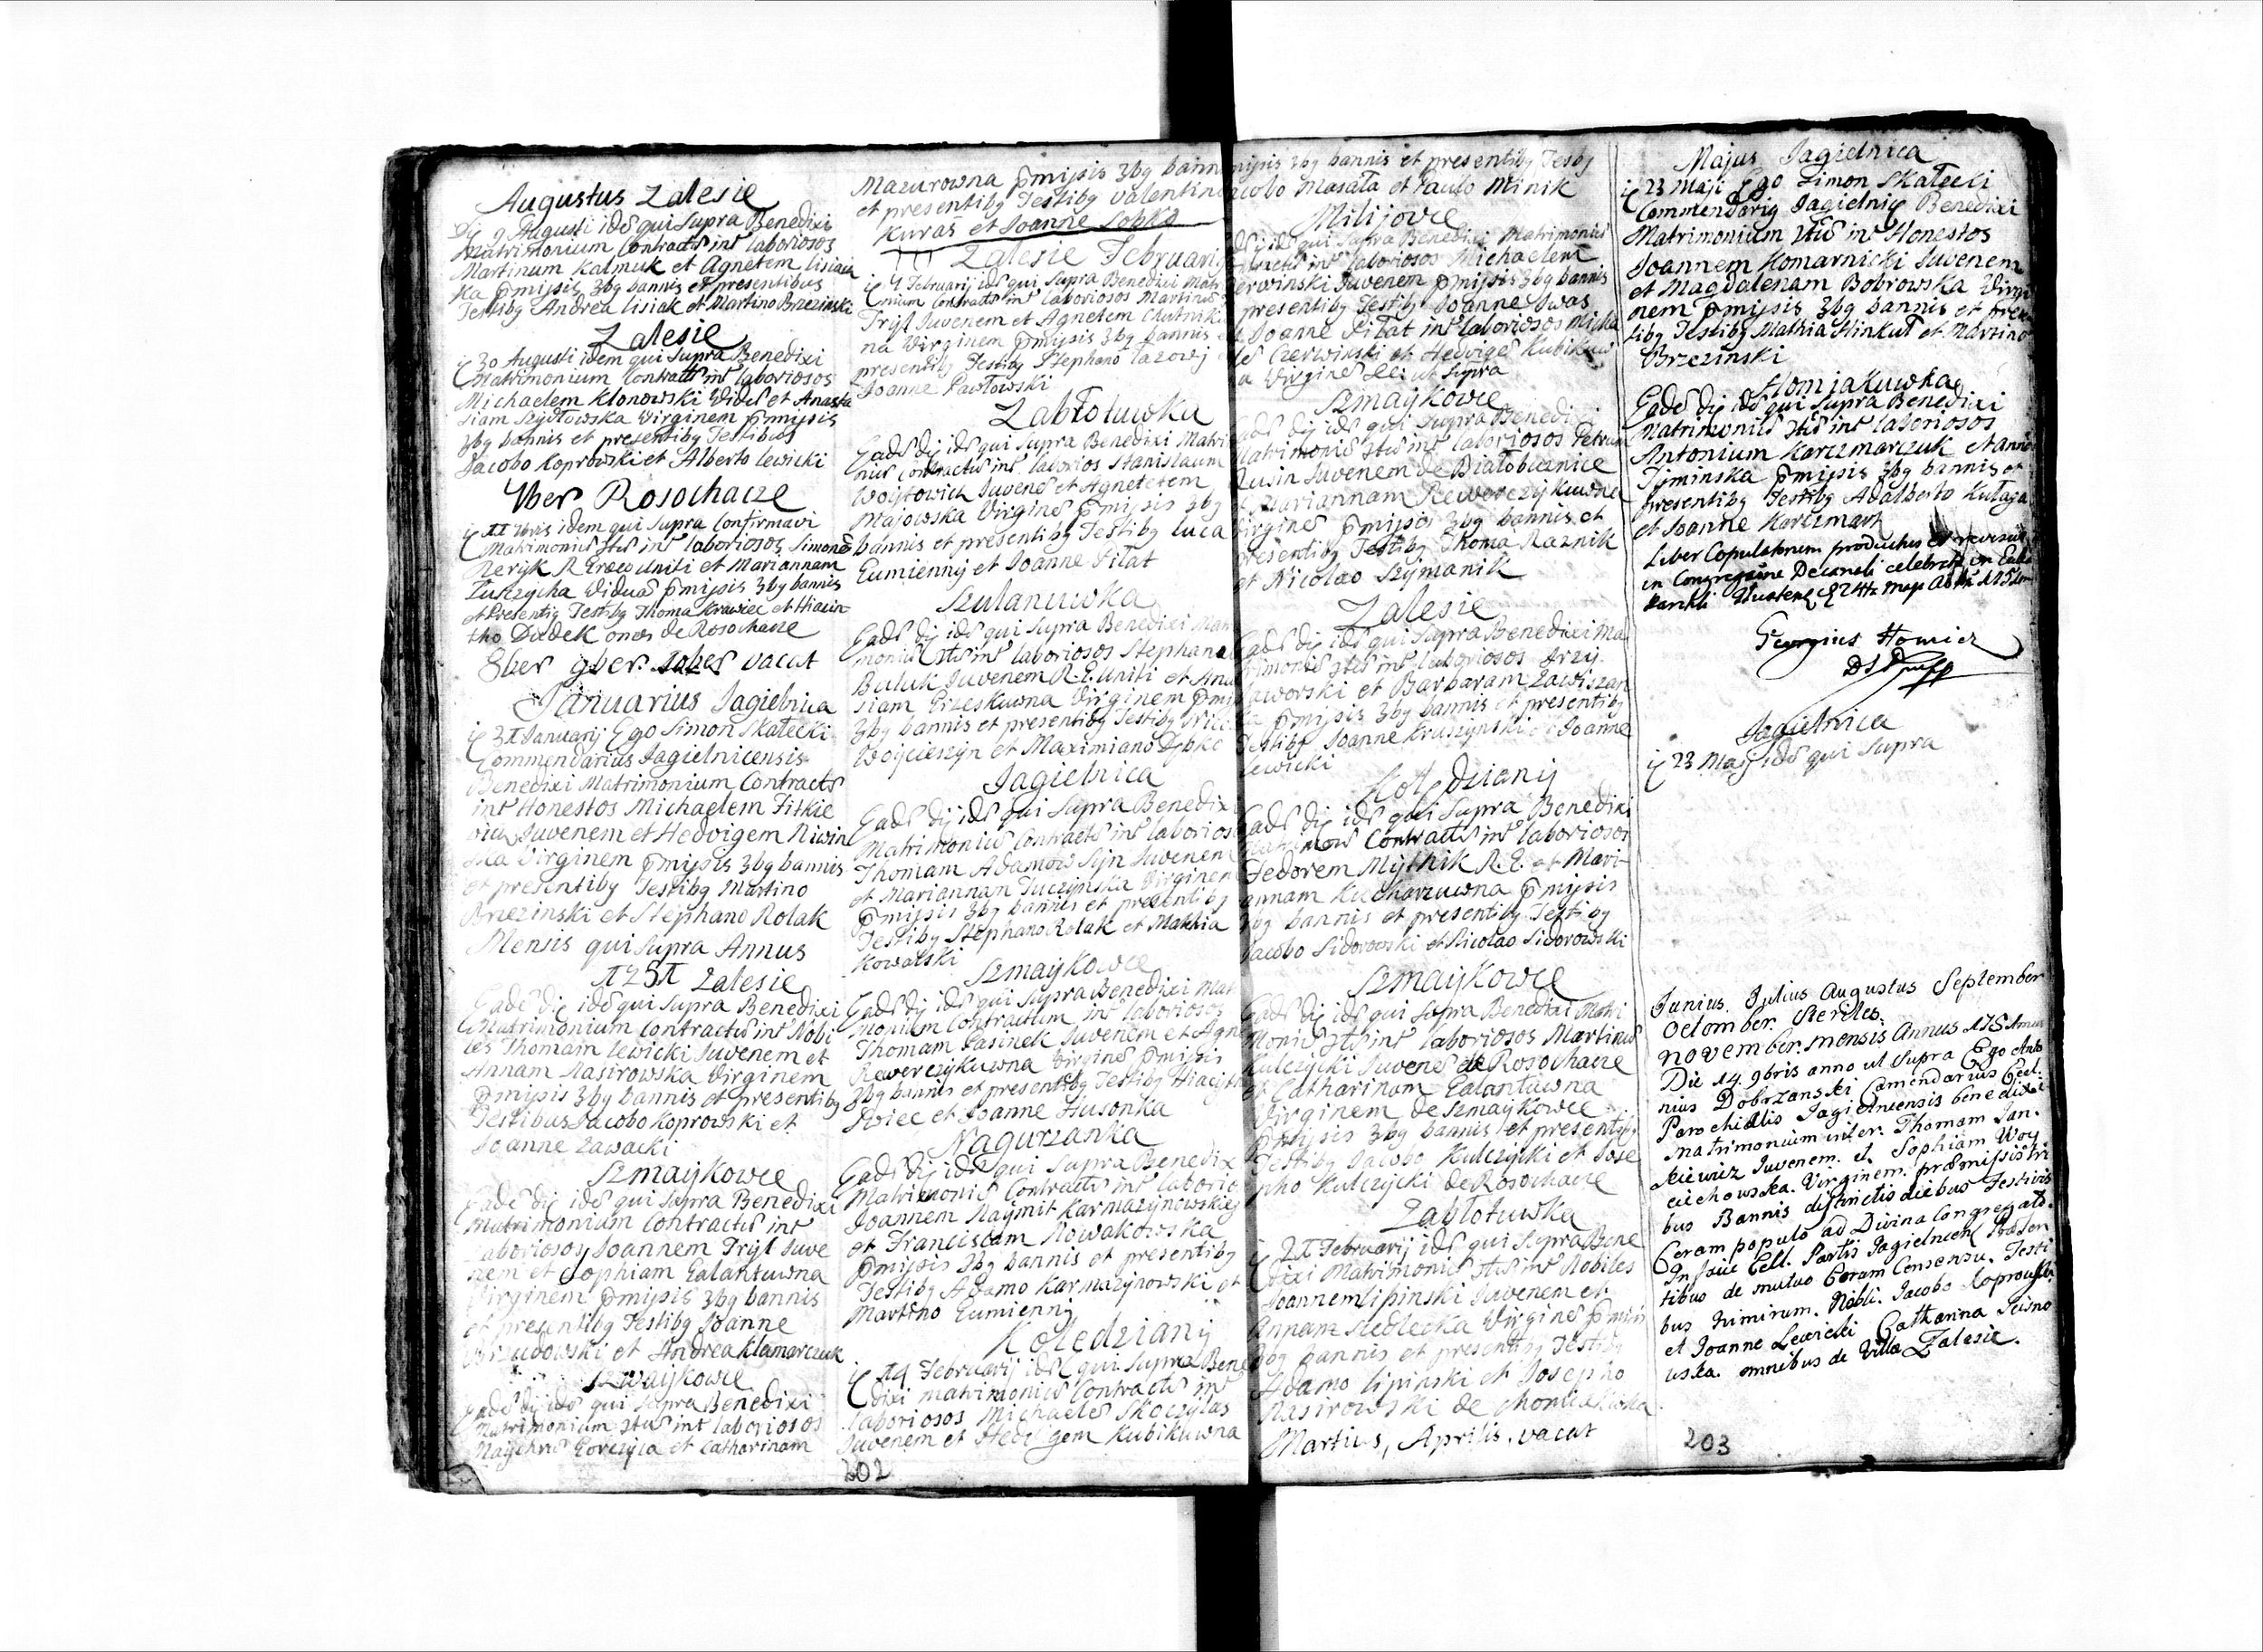 Augustus Zalesie
Dię 9 Augusti idē qui Supra Benedixi
Matrimonium Contractū int Laboriosos
Martinum Kalmuk et Agnetem Lisiac
ka pmissis 3bg bannis et presentibus
Testibg Andrea Lisiak et Martino Brzezinski
Zalesie
30 Augusti idem qui Supra Benedixi
Matrimonium Contractū int laboriosos
Michaelem Klonowski Viduū et Anasta
siam Szydłowska Virginem pmissis
3bg bannis et presentibg Testibus
Jacobo Koprowski et Alberto Lewicki
7ber Rosochacze
11 7bris idem qui Supra Confirmavi
Matrimoniū int laboriosos Simonē
Neryk R Græco Uniti et Mariannam
Viduā pmissis 3bg bannis
et Presentig Testibg Thoma Krawiec et Hiacin
tho Dudek ones de Rosochacze
8ber 9ber. 10ber vacat
Januarius Jagielnica
31 Januarij Ego Simon Skałecki
Commendarius Jagielnicensis
Benedixi Matrimonium Contractū
int Honestos Michaelem Fitkie
wicz Juvenem et Hedvigem Niwin
ska Virginem pmissis 3bg bannis
et presentibg Testibg Martino
Brzezinski et Stephano Rolak
Mensis qui Supra Annus
1751 Zalesie
Eadē dię idē qui Supra Benedixi
Matrimonium Contractū int Nobi
les Thomam Lewicki Juvenem et
Annam Nasirowska Virginem
pmissis 3bg bannis et presentibg
Testibus Jacobo Koprowski et
Joanne Zawacki
Szmaykowce
Eadē dię idē qui Supra Benedixi
Matrimonium Contractū int
Laboriosos Joannem Tryl Juve
nem et Sophiam Galantuwna
Virginem pmissis 3bg bannis
et presentibg Testibg Joanne
et Andrea Klamarczuk
Szmaykowce
Eadē dij idē qui Supra Benedixi
Matrimonium int laboriosos
et Catharinam
Mazurowna pmissis 3bg bann
et presentibg Testibg Valentino
Kuras et Joanne Sobka
Zalesie Februarij
4 Februarij idē qui Supra Benedixi Matri
nium Contractū int laboriosos Martinū
Tryl Juvenem et Agnetem Chutniki
na Virginem pmissis 3bg bannis
presentibg Testibg Stephano Łazowij
Joanne Pawłowski
Zabłotuwka
Eadē dij idē qui Supra Benedixi Matri
niū Contractū int laborios Stanislaum
Woytowicz Juvenē et Agnetetem
Majowska Virginē pmissis 3bg
bannis et presentibg Testibg Luca
Gumiennij et Joanne Pilat
Szulanuwka
Eadē dij idē qui Supra Benedixi Matri
moniū int laboriosos Stephanū
Buluk Juvenem R. G. Uniti et Ana
siam Grzeskuwna Virginem pmis
3bg bannis et presentibg Testibg Nico
Woijcieszyn et Maximiano Dębko
Jagielnica
Eadē dij idē qui Supra Benedixi
Matrimoniū Contractū int laborios
Thomam Adamow Syn Juvenem
et Mariannam Tuczynska Virginem
pmissis 3bg bannis et presentibg
Testibg Stephano Rolak et Mathia
Kowalski
Szmaykowce
Eadē dij idē qui Supra Benedixi Mat
monium Contractum int laboriosos
Thomam Pasinek Juvenem et Agne
Rewerczykuwna Virginē pmissis
3bg bannis et presentibg Testibg Hiacijnth
et Joanne Husonka
Nagurzanka
Eadē dij idē qui Supra Benedixi
Matrimoniū Contractū int laborio
Joannem Naijmit Karmazynowskiej
et Franciscam Nowakowska
pmissis 3bg bannis et presentibg
Testibg Adamo Karmazynowski et
Martino Gumiennij
Kolędzianij
14 Februarij idē qui Supra Bene
dixi matrimoniū Contractū int
laboriosos Michaelē Skoczylas
Juvenem et Hedvigem Kubikuwna
202
missis 3bg bannis et presentibg Testbg
Jacobo Masała et Paulo Minik
Milijowce
idē qui Supra Benedixi Matrimoniū
Contractū int laboriosos Michaelem
Czerwinski Juvenem pmissis 3bg bannis
presentibg Testibg Joanne Iwas
et Joanne Pilat int laboriosos Micha
lē Czerwinski et Hedvigē Kubikuw
a Virginē ut Supra
Szmaykowce
Eadē dij idē qui Supra Benedixi
Matrimoniū int laboriosos Petrum
Rusin Juvenem de Białoboznice
Mariannam Rewerczykuwna
Virginē pmissis 3bg bannis et
presentibg Testibg Thoma Raznik
et Nicolao Szymanik
Zalesie
Eadē dij idē qui Supra Benedixi Ma
trimoniū int laboriosos Grzij
Jaworski et Barbaram Zawiszan
ka pmissis 3bg bannis et presentibg
Testibg Joanne Kruszynski et Joanne
Lewicki
Kolędzianij
Eadē dij idē qui Supra Benedixi
Contractū int laboriosos
Fedorem Mytnik R. G. et Mari
annam Kucharzuwna pmissis
3bg bannis et presentibg Testibg
Jacobo Sidorowski et Nicolao Sidorowski
Szmaykowce
Eadē dij idē qui Supra Benedixi Matri
moniū int laboriosos Martinū
Kulczycki Juvenē de Rosochacze
et Catharinam Galantuwna
Virginem de Szmaykowce
pmissis 3bg bannis et presentibg
Testibg Jacobo Kulczycki et Jose
pho Kulczycki de Rosochacze
Zabłotuwka
21 Februarij idē qui Supra Bene
dixi Matrimoniū int Nobiles
Joannem Lipinski Juvenem et
Annam Siedlecka Virginē pmis
3bg bannis et presentibg Testibg
Adamo Lipinski et Josepho
Nasirowski de Chomiakuwka
Martius, Aprilis. vacat
Majus Jagielnica
23 Maji Ego Simon Skałecki
Commendarig Jagielnię Benedixi
Matrimonium int Honestos
Joannem Komarnicki Juvenem
et Magdalenam Bobrowska Virgi
nem pmissis 3bg bannis et presen
tibg Testibg Mathia Hinkuł et Martino
Brzezinski
Homiakuwka
Eadē dij idē qui Supra Benedixi
Matrimoniū int laboriosos
Antonium Karczmarczuk et Annā
Tyminska pmissis 3bg bannis et
presentibg Testibg Adalberto Kułaga
et Joanne Karczmarz
Liber Copulatorum productus et revisus
in Congregatione Decanali celebrata in Eccla
Georgius Homicz
Jagielnica
23 Maij idē qui Supra
Junius. Julius Augustus September
October. Steriles.
november. mensis Annus
Die 14. 9bris anno ut Supra Ego Anto
nius Dobrzanski Camendarius Eccl.
Parochialis Jagielnicensis benedixi
matrimonium inter. Thomam Jan.
kiewicz Juvenem. et Sophiam Woy
ciechowska. Virginem. præmissis tri
bus Bannis distinctis diebus Festivis
Coram populo ad Divina Congregato.
In facie Eccl. Jagielnicen Præsen
tibus de mutuo Coram Consensu. Testi
bus nimirum. Nobli. Jacobo Koprowski
et Joanne Lewicki Catharina
uska. omnibus de Villa Zalesie.
203